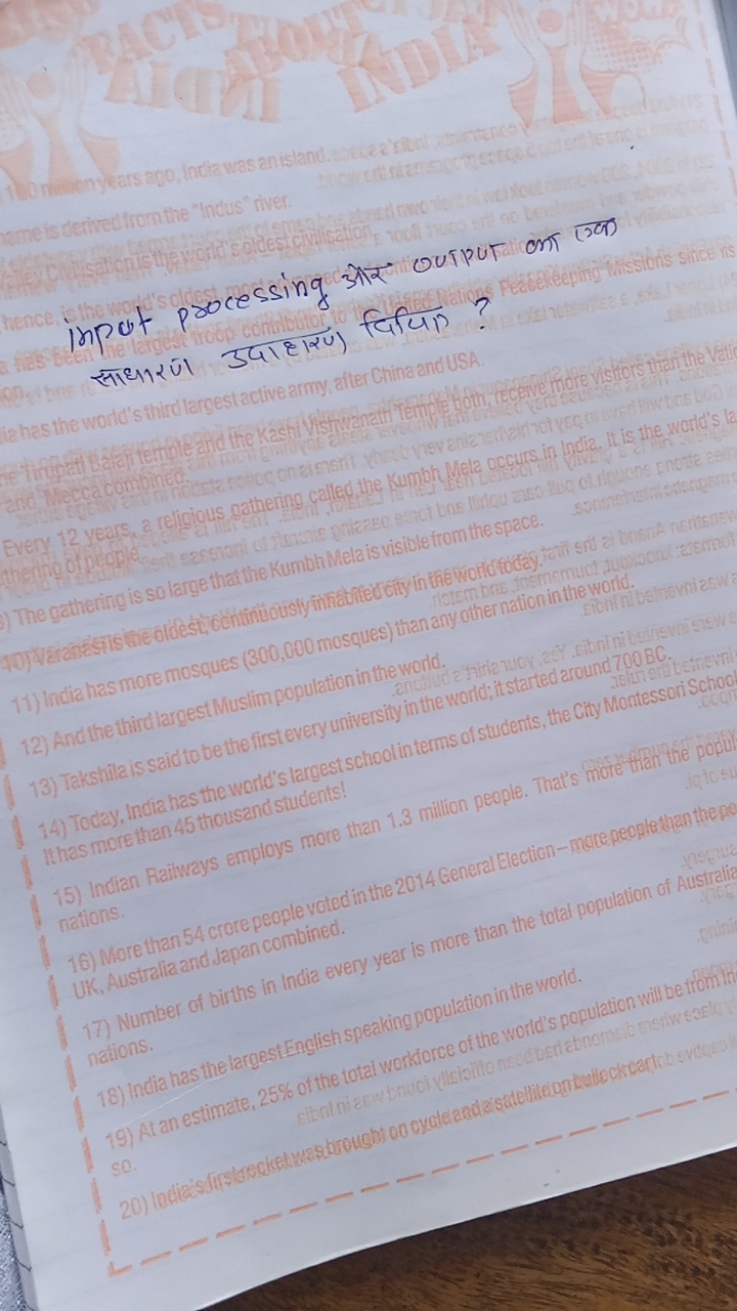 FACTS ABOUT
INDIA
WOW!
years ago, India was an island.
name is derived from the "Indus" river.
Civilisation is the world's oldest civilisation.
hence, is the world's oldest,
input processing और OUTPUT का एक
साधारण उदाहरण दिजिए ?
a has been the largest troop contributor to the United Nations Peacekeeping Missions since its
ia has the world's third largest active army, after China and USA.
he Tirupati Balaji temple and the Kashi Vishwanath Temple both, receive more visitors than the Vatic
and Mecca combined.
Every 12 years, a religious gathering called the Kumbh Mela occurs in India. It is the world's la
thering of people.
) The gathering is so large that the Kumbh Mela is visible from the space.
10) Varanasi is the oldest, continuously inhabited city in the world today.
11) India has more mosques (300,000 mosques) than any other nation in the world.
12) And the third largest Muslim population in the world.
13) Takshila is said to be the first every university in the world; it started around 700 BC.
14) Today, India has the world's largest school in terms of students, the City Montessori School
It has more than 45 thousand students!
15) Indian Railways employs more than 1.3 million people. That's more than the popul
nations.
16) More than 54 crore people voted in the 2014 General Election – more people than the po
UK, Australia and Japan combined.
17) Number of births in India every year is more than the total population of Australia
nations.
18) India has the largest English speaking population in the world.
19) At an estimate, 25% of the total workforce of the world's population will be from In
so.
20) India's first rocket was brought on cycle and a satellite on bullock cart